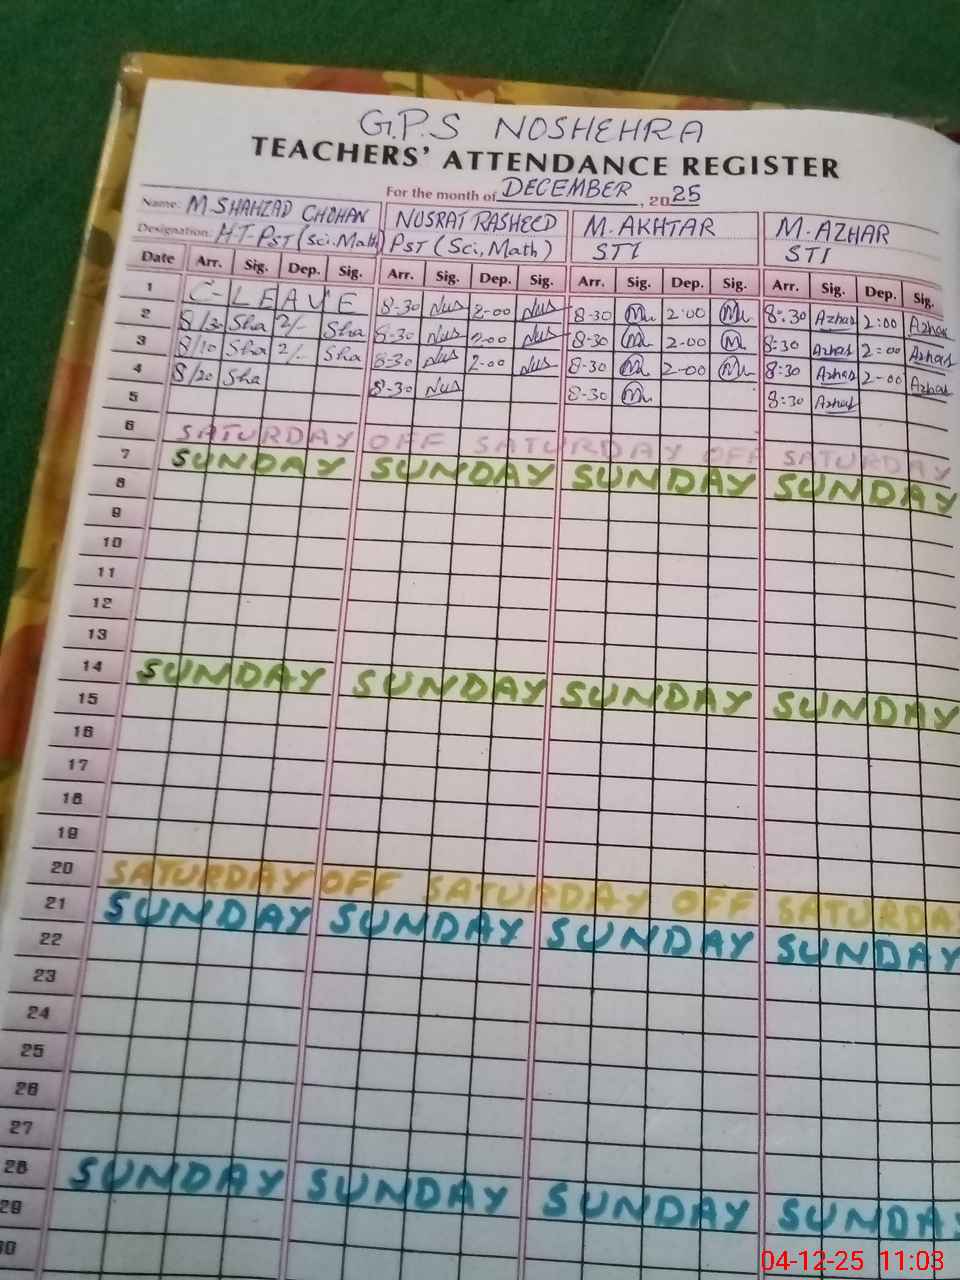 G.P.S NOSHEHRA
TEACHERS' ATTENDANCE REGISTER
For the month of DECEMBER, 2025
Name: M.SHAHZAD CHOHAN NUSRAT RASHEED M.AKHTAR M.AZHAR
Designation: HT-PST(Sci.Math) PST (Sci,Math) STI STI
Date Arr. Sig. Dep. Sig. Arr. Sig. Dep. Sig. Arr. Sig. Dep. Sig. Arr. Sig. Dep. Sig.
1 C-LEAVE 8-30 Nus 2-00 Nus 8-30 Mu 2:00 Mu 8:30 Azhar 2:00 Azhar
2 8/30 Sha 2/- Sha 8-30 Nus 2-00 Nus 8-30 Mu 2-00 M 8:30 Azhar 2:00 Azhar
3 8/10 Sha 2/- Sha 8-30 Nus 2-00 Nus 8-30 Mu 2-00 Mu 8:30 Azhar 2-00 Azhar
4 8/20 Sha 8-30 Nus 8-30 Mu 8:30 Azhar
5
6 SATURDAY OFF SATURDAY OFF SATURDAY
7 SUNDAY SUNDAY SUNDAY SUNDAY
8
9
10
11
12
13
14 SUNDAY SUNDAY SUNDAY SUNDAY
15
16
17
18
19
20 SATURDAY OFF SATURDAY OFF SATURDA
21 SUNDAY SUNDAY SUNDAY SUNDAY
22
23
24
25
26
27
28 SUNDAY SUNDAY SUNDAY SUNDA
29
30
04-12-25 11:03